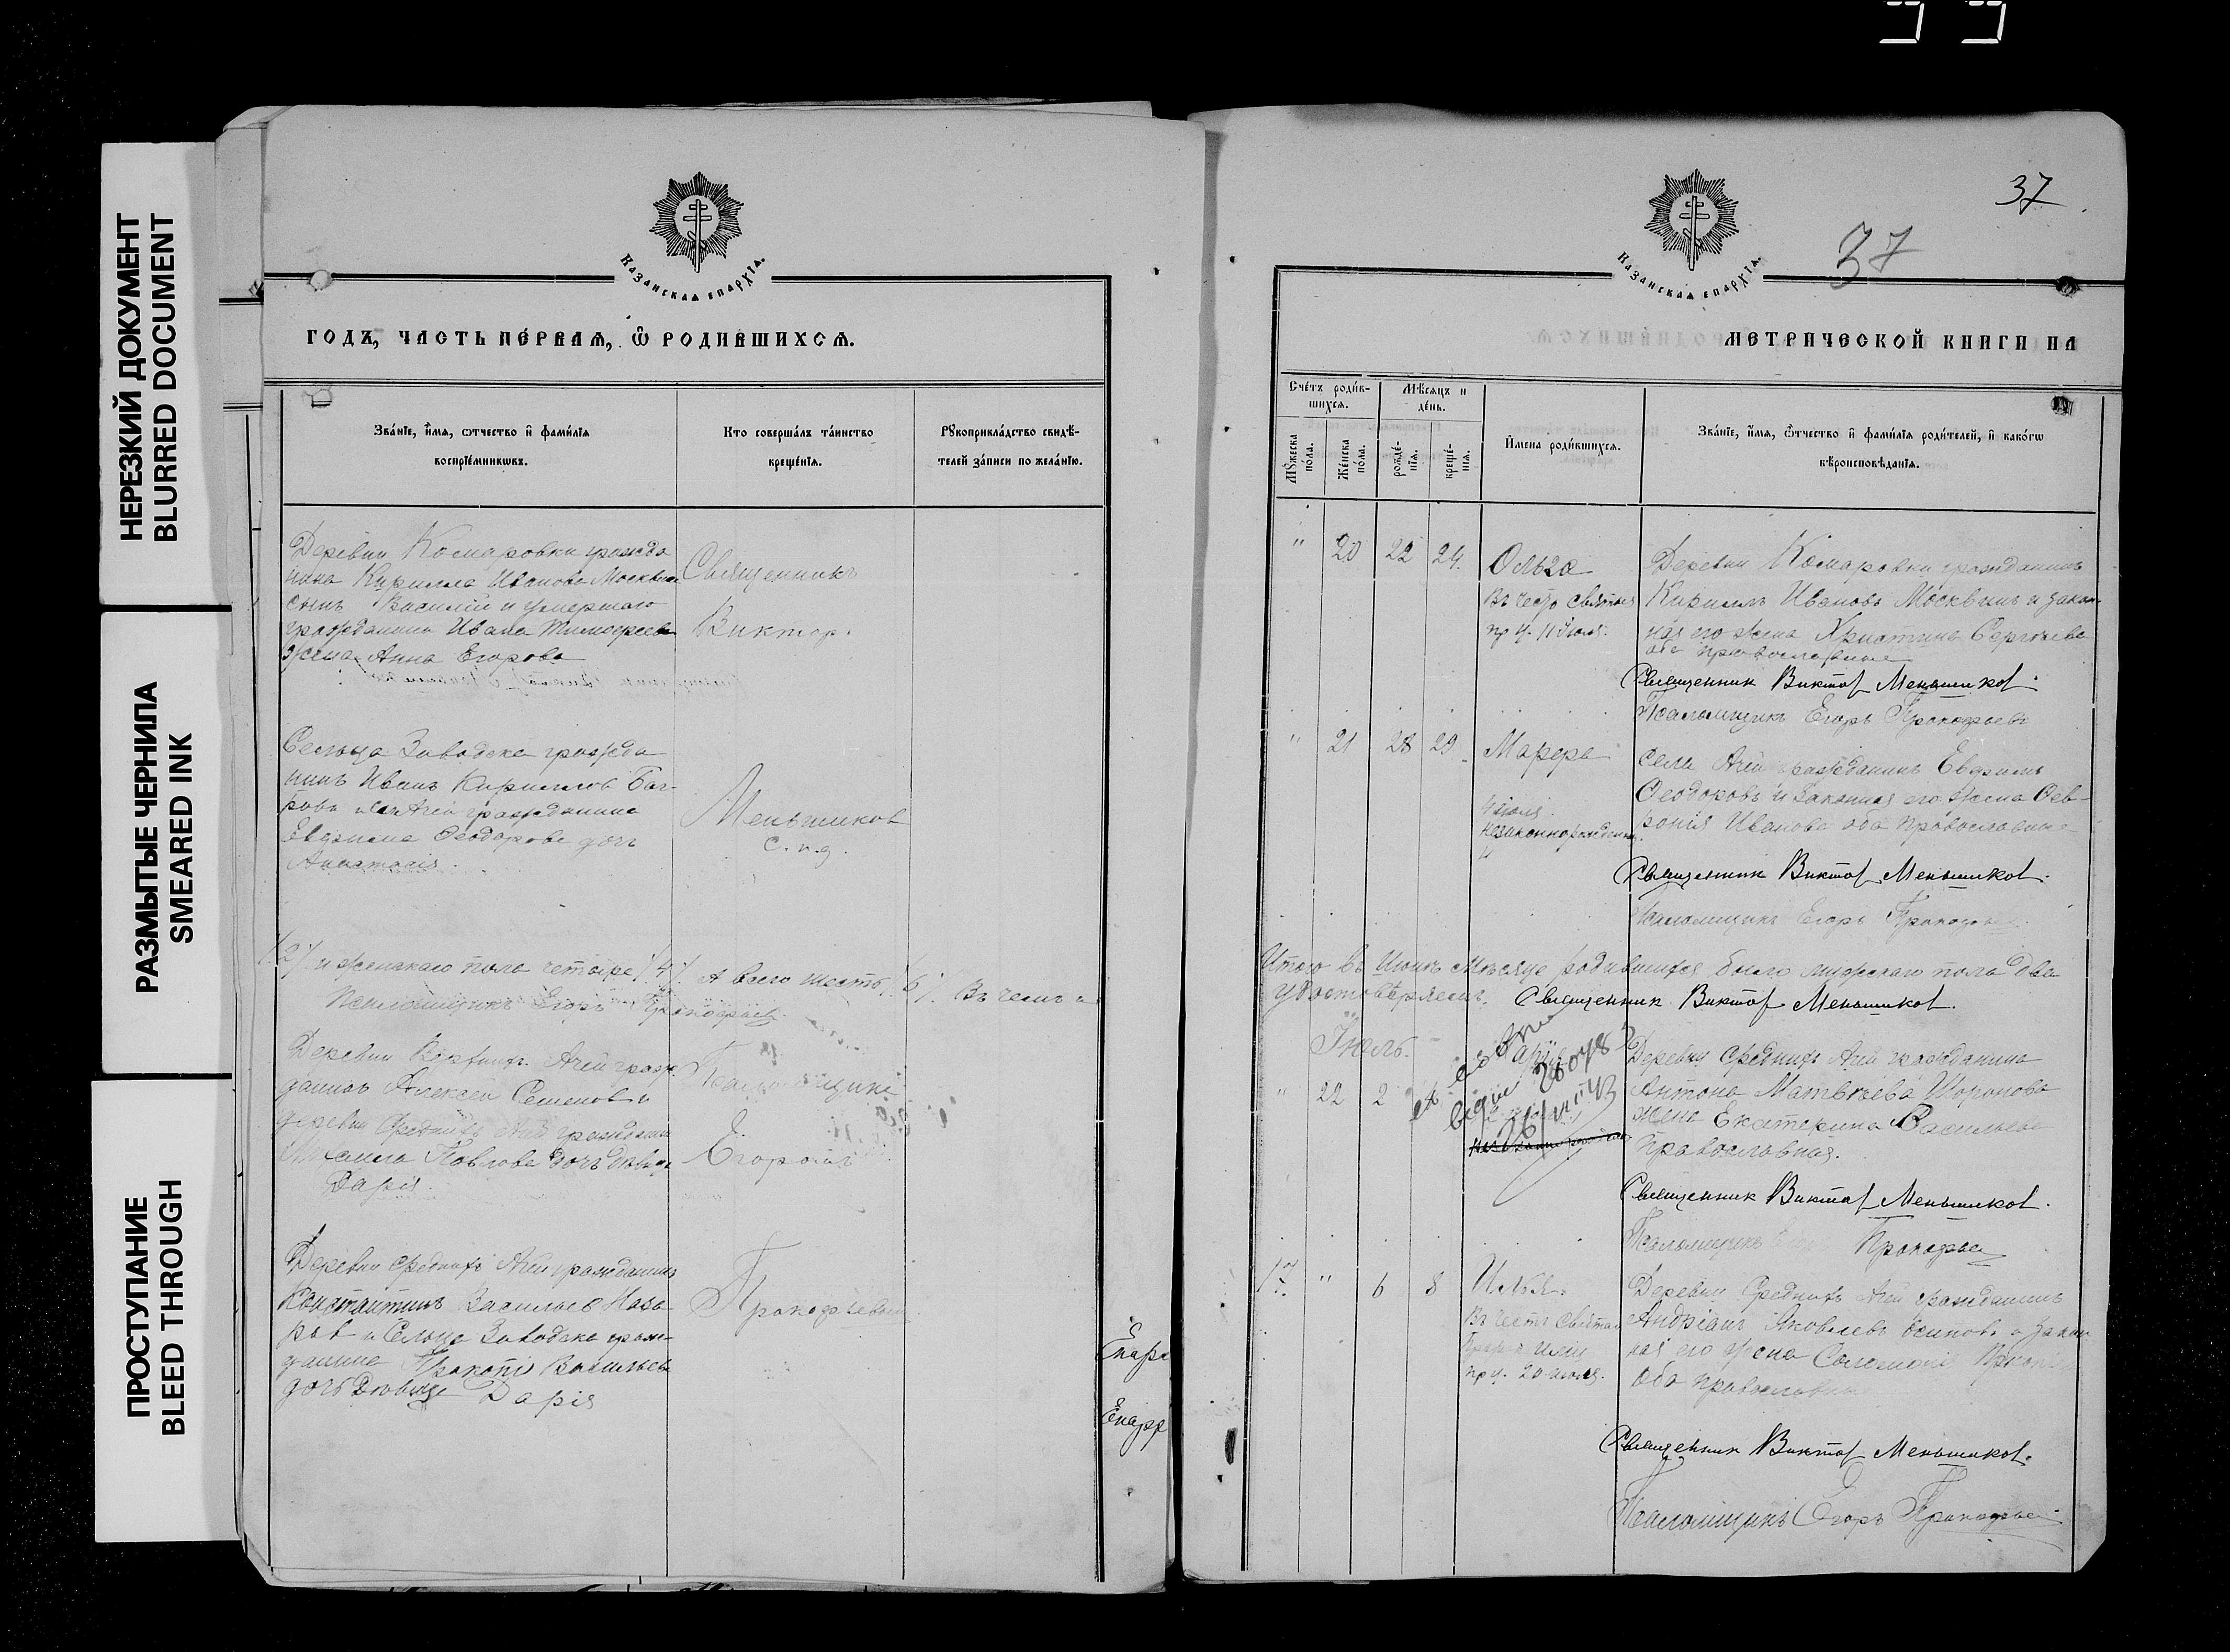 НЕРЕЗКИЙ ДОКУМЕНТ
BLURRED DOCUMENT
РАЗМЫТЫЕ ЧЕРНИЛА
SMEARED INK
ПРОСТУПАНИЕ
BLEED THROUGH
Казанская епархїя.
годъ, часть пе́рвая, ѿ родившихсѧ.
Зва́нїе, и҆́мѧ, ѻтчество и҆ фами́лїѧ
воспрїе́мниковъ.
Кто соверша́лъ та́инство
креще́нїѧ.
Рꙋкоприкла́дство свидѣ́-
телей за́писи по жела́нїю.
Деревни Комаровки гражда
нина Кирилла Иванова Москвина
сынъ Василій и умершаго
гражданина Ивана Тимофеева
жена Анна Егорова
Священникъ
Виктор
Сельца Заводска гражда
нинъ Иванъ Кириллов Баг-
ровъ и гражданина
Евфима Феодорова дочь
Анастасія.
Меньшиков
с. п. д.
/2/ и женскаго пола четыре /4/. А всего шесть /6/. Въ чемъ и
Псаломщикъ Егоръ Прокофьев
Деревни Верхнихъ Ачей граж
данинъ Алексей Семенов и
деревни Среднихъ Ачей гражданина
Павлова дочь девица
Дарія.
Егоромъ
Деревни Среднихъ Ачей гражданинъ
Константинъ Васильев Наза
ров и Сельца Заводска граж-
данина Прокопія Васильева
дочь девица Дарія
Прокофьевым
Епарх
Епарх
37
37
Казанская епархїя.
метрической книги на
Сче́тъ роди́в-
шихсѧ.
Мѣ́сѧцъ и
де́нь.
Мꙋжеска по́ла.
Же́нска по́ла.
рожде́-нїѧ.
креще́-нїѧ.
И҆мена роди́вшихсѧ.
Зва́нїе, и҆́мѧ, ѻ҆́тчество и҆ фами́лїѧ роди́телей, и҆ како́гѡ
вѣроисповѣ́данїѧ.
" 20 22 24. Ольга
Въ честь святыя
пр. ч. 11 Июля.
Деревни Комаровки гражданинъ
Кириллъ Ивановъ Москвинъ и закон-
ная его жена Христина Сергеева
оба православные
Священник Виктор Меньшиков.
Псаломщикъ Егоръ Прокофьевъ
" 21 28 29. Марфа
4 июля
незаконнорожденная
Села Ачей гражданинъ Евфимъ
Феодоровъ и законная его жена Фев-
ронія Иванова оба православные
Священник Виктор Меньшиков.
Псаломщикъ Егоръ Прокофьев
Итого въ Июнѣ месяце родившихся было мужскаго пола два
удостоверяемъ. Священник Виктор Меньшиков.
Июль.
" 22 2
Деревни Среднихъ Ачей гражданина
Антона Матвеева Шоронова
жена Екатерина Васильева
православная.
Священник Виктор Меньшиков.
Псаломщикъ Прокофьев
17. " 6 8 Илья.
Въ честь святаго
Прор. Илии
пр. ч. 20 июля.
Деревни Среднихъ Ачей гражданинъ
Андріанъ Яковлевъ Осиповъ и закон
ная его жена Соломонія
Оба православные
Священник Виктор Меньшиков.
Псаломщикъ Егоръ Прокофьев